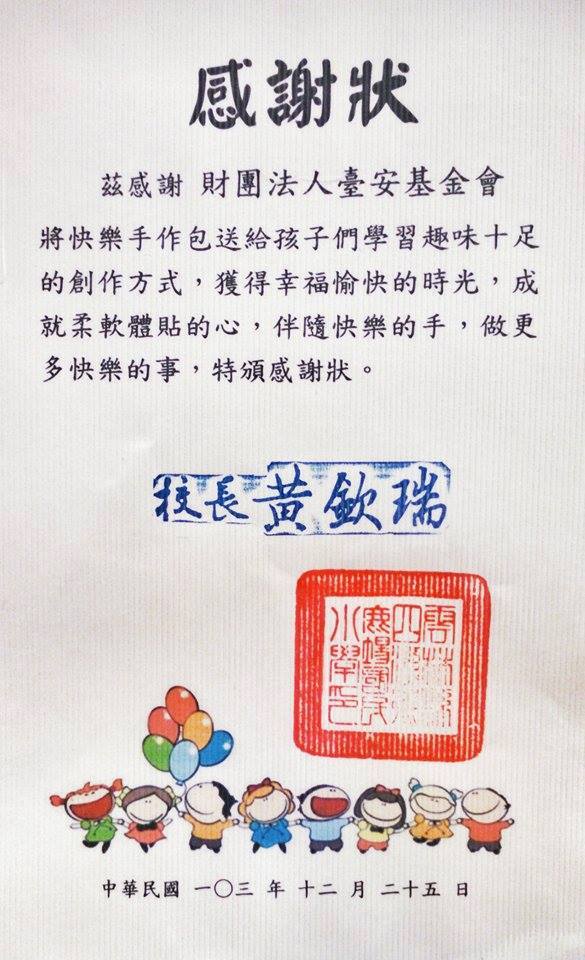 感謝狀
茲感謝 財團法人臺安基金會
將快樂手作包送給孩子們學習趣味十足
的創作方式，獲得幸福愉快的時光，成
就柔軟體貼的心，伴隨快樂的手，做更
多快樂的事，特頒感謝狀。
校長 黃欽瑞
中華民國 一〇三 年 十二 月 二十五 日